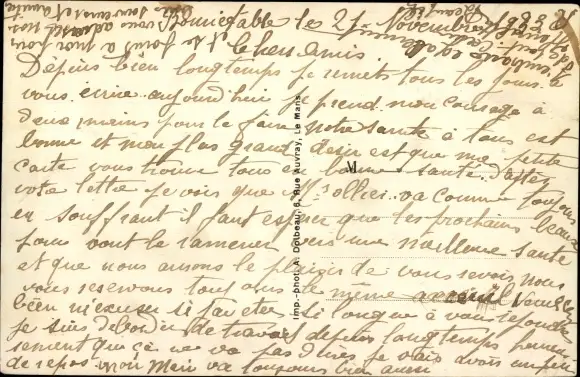 Bonnétable le 21 Novembre 1938
Chers Amis
Depuis bien longtemps je remets tous les jours à
vous écrire aujourd'hui je prend mon courage à
deux mains pour le faire notre santé à tous est
bonne et mon plus grand désir est que ma petite
carte vous trouve tous en bonne santé. D'après
votre lettre je vois que Mr Jollier va comme toujours
en souffrant il faut espérer que les prochains beaux
jours vont le ramener vers une meilleure santé
et que nous aurons le plaisir de vous revoir nous
vous réservons tous le même accueil
bien m'excuser si j'ai été si longue à vous répondre
je suis débordée de travail depuis longtemps heureu
sement que ça ne va pas durer je vais avoir un peu
de repos. Mon Mari va toujours bien aussi
Imp.-phot. A. Dolbeau, 6, Rue Auvray, Le Mans
M